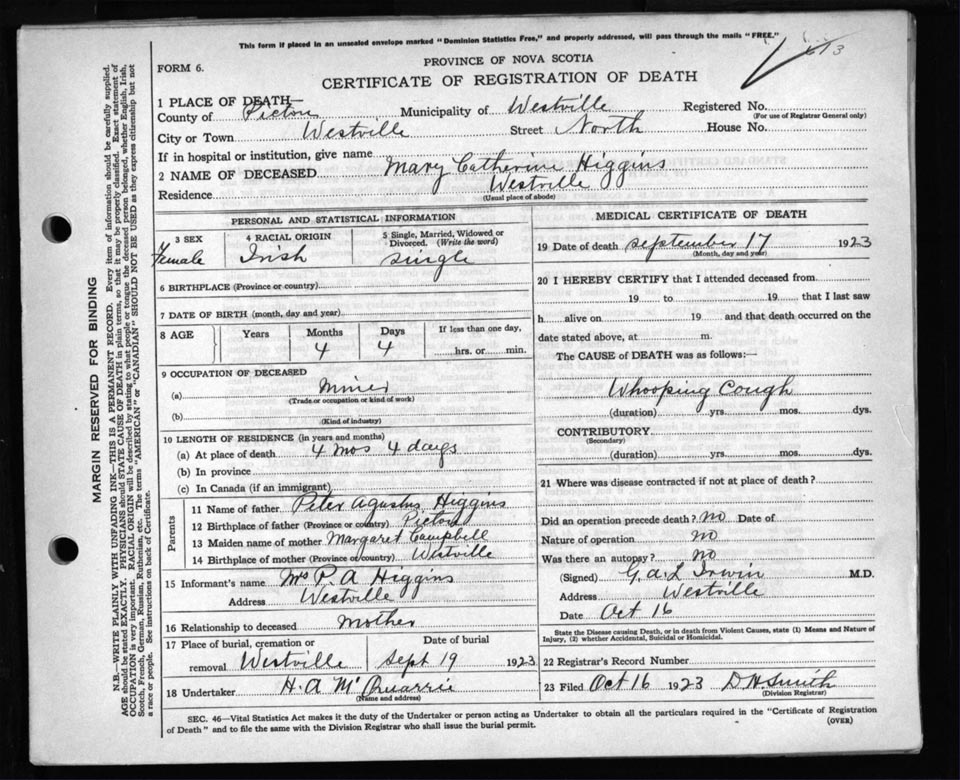 This form if placed in an unsealed envelope marked "Dominion Statistics Free," and properly addressed, will pass through the mails "FREE."
FORM 6.
PROVINCE OF NOVA SCOTIA
CERTIFICATE OF REGISTRATION OF DEATH
1 PLACE OF DEATH—
County of Pictou Municipality of Westville Registered No.
(For use of Registrar General only)
City or Town Westville Street North House No.
If in hospital or institution, give name
2 NAME OF DECEASED Mary Catherine Higgins
Residence Westville
(Usual place of abode)
PERSONAL AND STATISTICAL INFORMATION
3 SEX Female
4 RACIAL ORIGIN Irish
5 Single, Married, Widowed or Divorced. (Write the word) single
6 BIRTHPLACE (Province or country)
7 DATE OF BIRTH (month, day and year)
8 AGE Years Months 4 Days 4 If less than one day, hrs. or min.
9 OCCUPATION OF DECEASED
(a) Miner
(Trade or occupation or kind of work)
(b)
(Kind of industry)
10 LENGTH OF RESIDENCE (in years and months)
(a) At place of death 4 mos 4 days
(b) In province
(c) In Canada (if an immigrant)
Parents
11 Name of father Peter Agustus Higgins
12 Birthplace of father (Province or country) Pictou
13 Maiden name of mother Margaret Campbell
14 Birthplace of mother (Province or country) Westville
15 Informant's name Mrs P. A Higgins
Address Westville
16 Relationship to deceased Mother
17 Place of burial, cremation or removal Westville
Date of burial Sept 19 1923
18 Undertaker H. A Mc
(Name and address)
MEDICAL CERTIFICATE OF DEATH
19 Date of death september 17 1923
(Month, day and year)
20 I HEREBY CERTIFY that I attended deceased from
19 to 19 that I last saw
h alive on 19 and that death occurred on the
date stated above, at m.
The CAUSE of DEATH was as follows:—
Whooping Cough
(duration) yrs. mos. dys.
CONTRIBUTORY
(Secondary)
(duration) yrs. mos. dys.
21 Where was disease contracted if not at place of death?
Did an operation precede death? no Date of
Nature of operation no
Was there an autopsy? no
(Signed) G. A. L Irwin M.D.
Address Westville
Date Oct 16
State the Disease causing Death, or in death from Violent Causes, state (1) Means and Nature of
Injury, (2) whether Accidental, Suicidal or Homicidal.
22 Registrar's Record Number
23 Filed Oct 16 1923 D H. Smith
(Division Registrar)
SEC. 46—Vital Statistics Act makes it the duty of the Undertaker or person acting as Undertaker to obtain all the particulars required in the "Certificate of Registration
of Death" and to file the same with the Division Registrar who shall issue the burial permit.
(OVER)
MARGIN RESERVED FOR BINDING
N.B.—WRITE PLAINLY WITH UNFADING INK—THIS IS A PERMANENT RECORD. Every item of information should be carefully supplied.
AGE should be stated EXACTLY. PHYSICIANS should STATE CAUSE OF DEATH in plain terms, so that it may be properly classified. Exact statement of
OCCUPATION is very important. RACIAL ORIGIN will be described by stating to what people or tongue the deceased person belonged, whether English, Irish,
Scotch, French, German, Russian, Ruthenian, etc. The terms "AMERICAN" or "CANADIAN" SHOULD NOT BE USED as they express citizenship but not
a race or people. See instructions on back of Certificate.